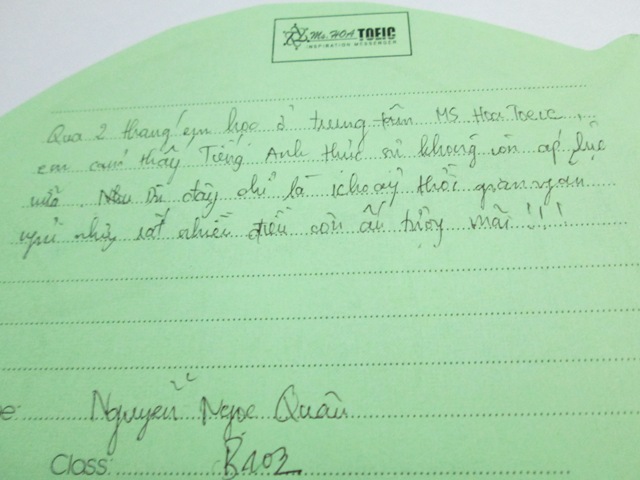 Ms. HOA TOEIC
INSPIRATION MESSENGER
Qua 2 tháng em học ở trung tâm MS Hoa Toeic...
em cảm thấy Tiếng Anh thực sự không còn áp lực
nữa. đây chỉ là khoảng thời gian ngắn
rất nhiều điều còn ấn tượng mãi!!!
Nguyễn Ngọc Quân
Class: B102